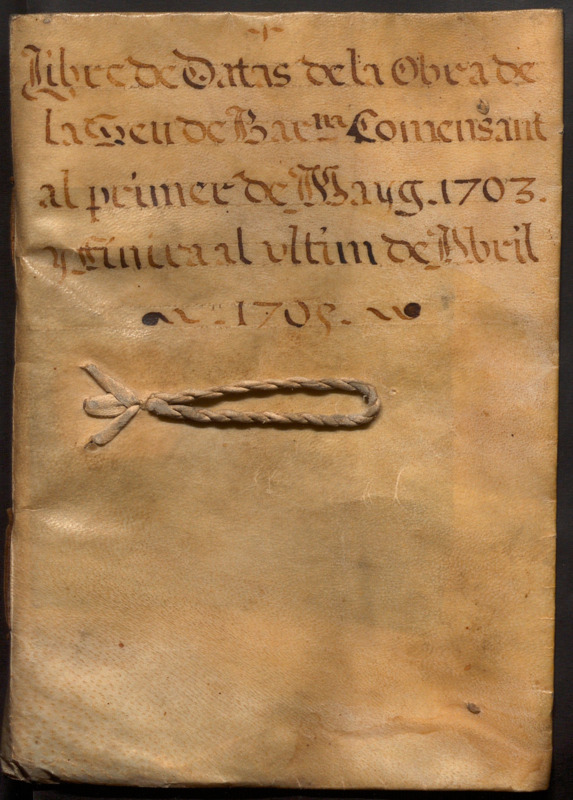 Llibre de Datas de la Obra de
la Seu de Barna Comensant
al primer de Mayg. 1703.
y Finira al ultim de Abril
1705.